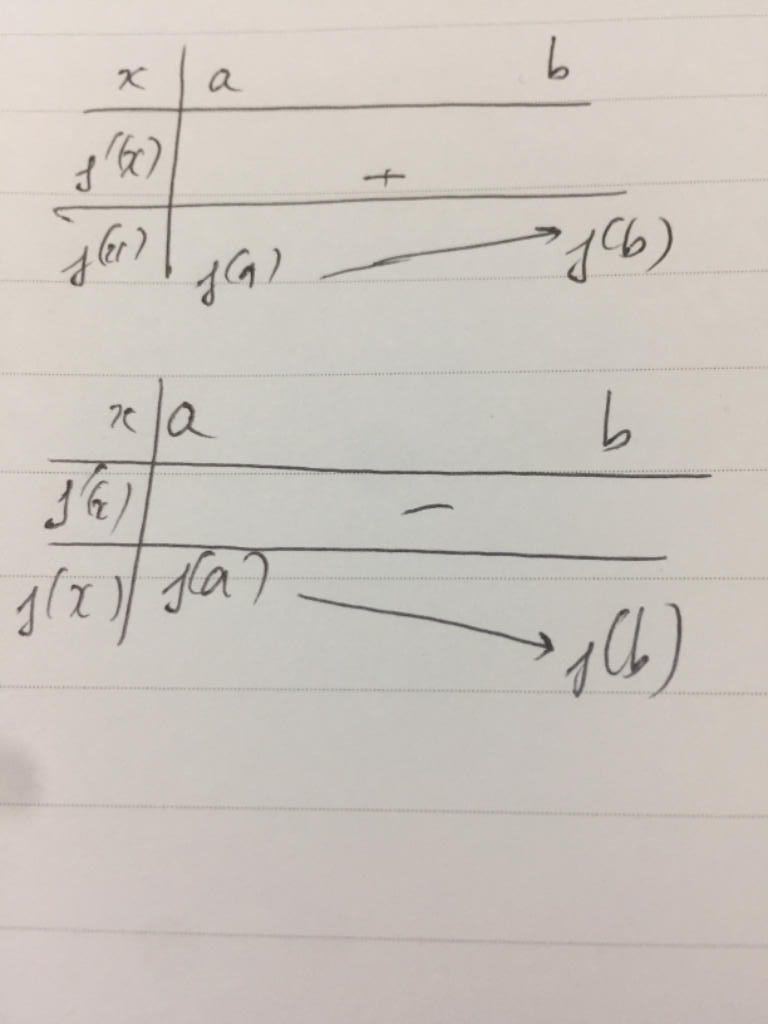 x a b
f'(x) +
f(x) f(a) → f(b)
x a b
f'(x) −
f(x) f(a) → f(b)